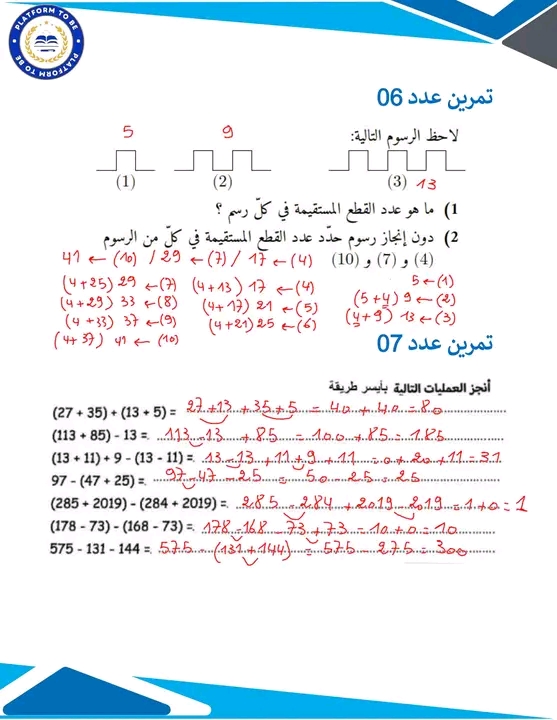 PLATFORM TO BE
PLATFORM TO BE
تمرين عدد 06
لاحظ الرسوم التالية:
5 9
(1) (2) (3) 13
1) ما هو عدد القطع المستقيمة في كلّ رسم ؟
2) دون إنجاز رسوم حدّد عدد القطع المستقيمة في كلّ من الرسوم
(4) و (7) و (10) (4) → 17 / (7) → 29 / (10) → 41
(1) → 5
(2) → 9 (5+4)
(3) → 13 (4+9)
(4) → 17 (4+13)
(5) → 21 (4+17)
(6) → 25 (4+21)
(7) → 29 (4+25)
(8) → 33 (4+29)
(9) → 37 (4+33)
(10) → 41 (4+37)
تمرين عدد 07
أنجز العمليات التالية بأيسر طريقة
(27 + 35) + (13 + 5) = 27+13 + 35+5 = 40 + 40 = 80
(113 + 85) - 13 = 113-13 + 85 = 100 + 85 = 185
(13 + 11) + 9 - (13 - 11) = 13-13 + 11+9 + 11 = 0+20+11 = 31
97 - (47 + 25) = 97-47 - 25 = 50 - 25 = 25
(285 + 2019) - (284 + 2019) = 285 - 284 + 2019-2019 = 1+0 = 1
(178 - 73) - (168 - 73) = 178-168 - 73+73 = 10+0 = 10
575 - 131 - 144 = 575 - (131+144) = 575 - 275 = 300